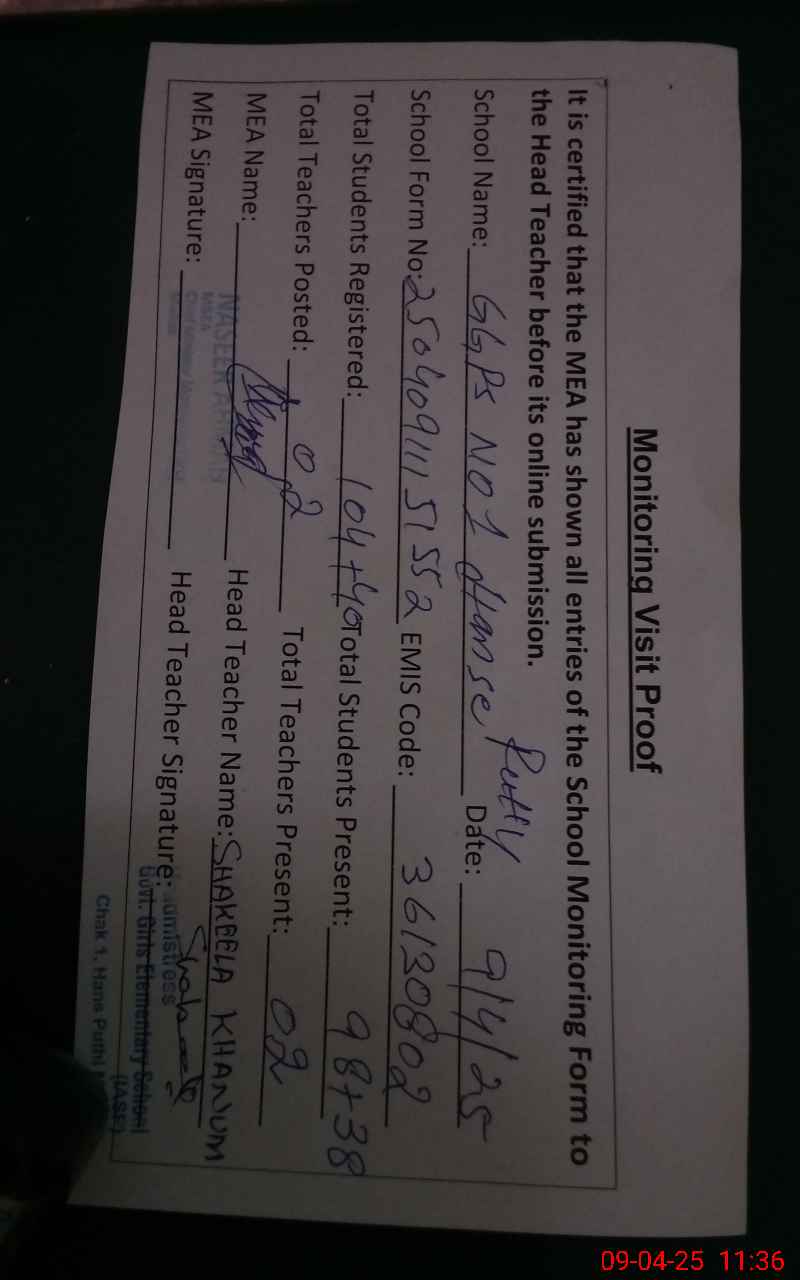 Monitoring Visit Proof
It is certified that the MEA has shown all entries of the School Monitoring Form to
the Head Teacher before its online submission.
School Name: GGPS NO 1 Hanse Putty Date: 9/4/25
School Form No: 25040911151552 EMIS Code: 36130802
Total Students Registered: 104+40 Total Students Present: 98+38
Total Teachers Posted: 02 Total Teachers Present: 02
MEA Name: NASEER Head Teacher Name: SHAKEELA KHANUM
MEA Signature: Head Teacher Signature:
Govt. Girls Elementary School
Chak 1, Hans Putthi
09-04-25 11:36